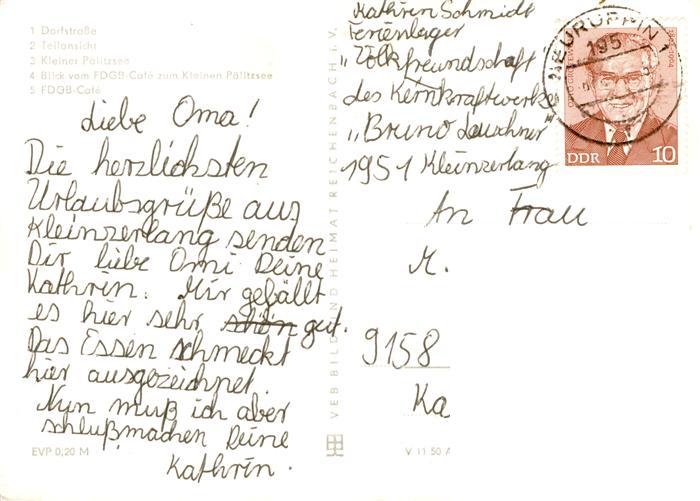 1 Dorfstraße
2 Teilansicht
3 Kleiner Pälitzsee
4 Blick vom FDGB-Café zum Kleinen Pälitzsee
5 FDGB-Café
Liebe Oma!
Die herzlichsten
Urlaubsgrüße aus
Kleinzerlang senden
Dir liebe Omi Deine
Kathrin. Mir gefällt
es hier sehr schön gut.
Das Essen schmeckt
hier ausgezeichnet.
Nun muß ich aber
schlußmachen Deine
Kathrin.
EVP 0,20 M
VEB BILD UND HEIMAT REICHENBACH i. V.
V 11 50 A
Kathren Schmidt
Ferienlager
„Völkfreundschaft"
des Kernkraftwerks
„Bruno Leuschner
1951 Kleinzerlang
An Frau
M.
9158
Ka
NEURUPPIN 1
195
DDR 10